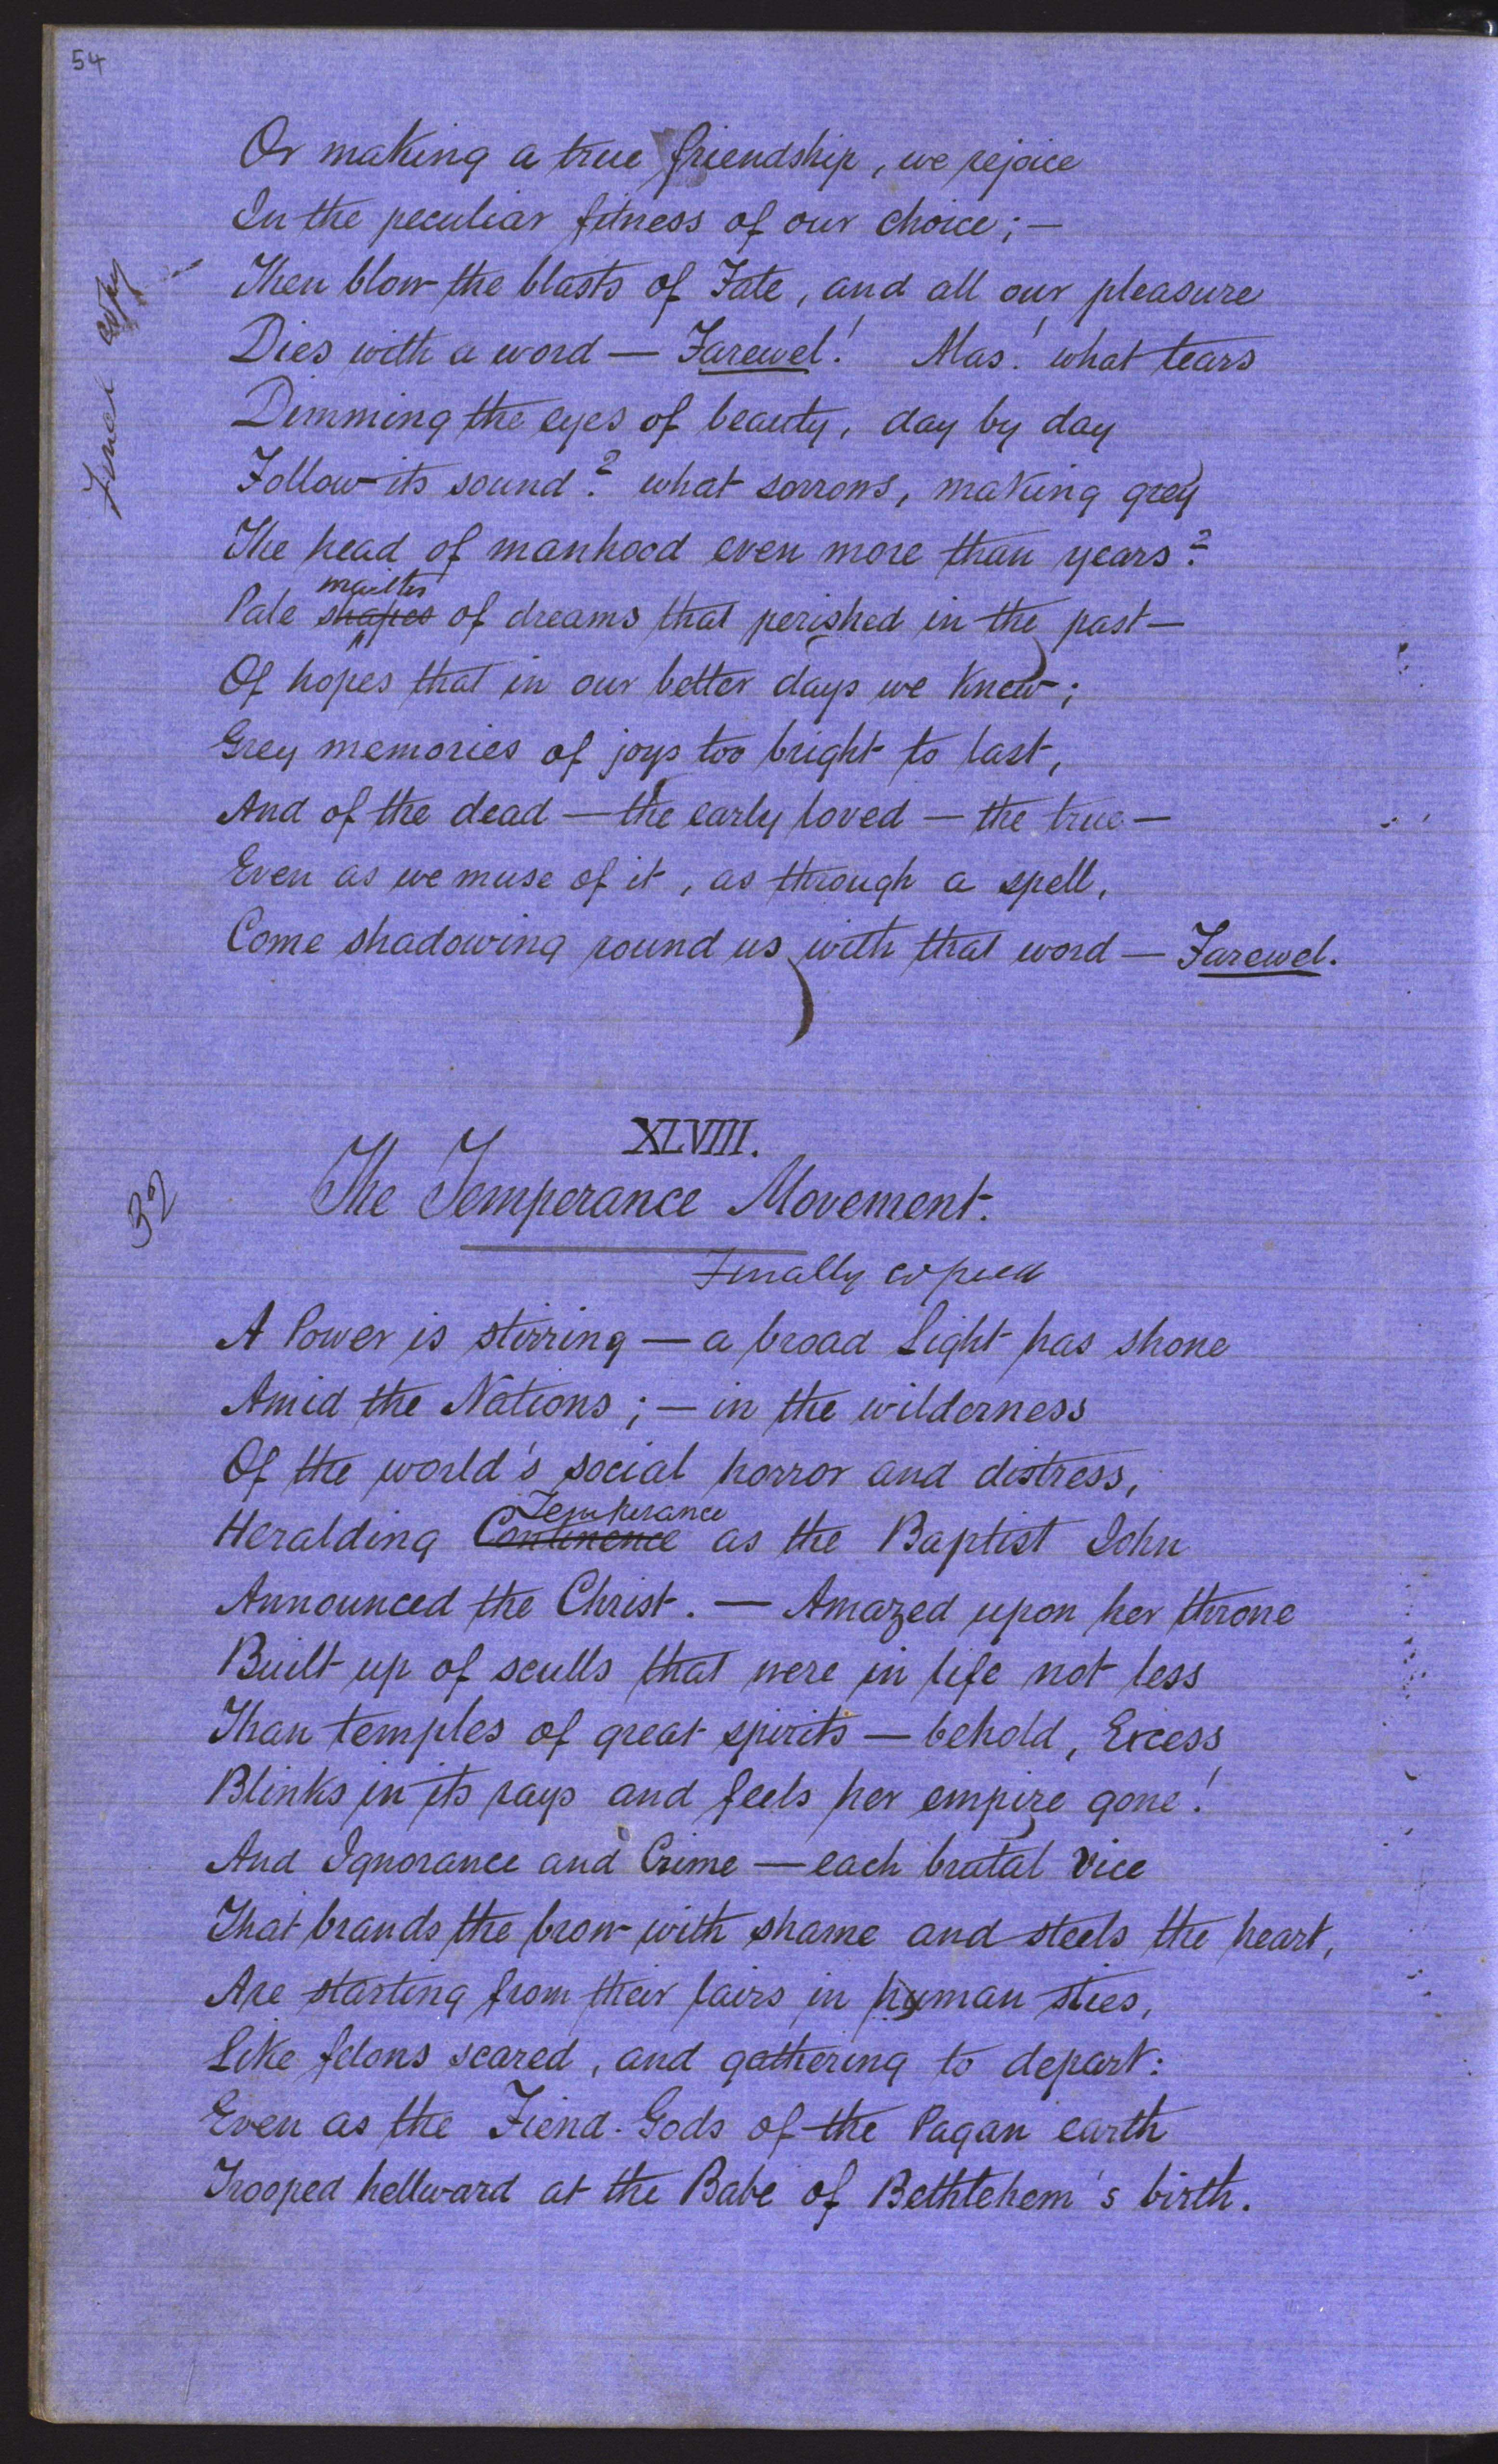 54
Or making a true friendship, we rejoice
In the peculiar fitness of our choice; —
Then blow the blasts of Fate, and all our pleasure
Dies with a word — Farewel! Alas! what tears
Dimming the eyes of beauty, day by day
Follow its sound? what sorrows, making grey
The head of manhood even more than years?
Pale shapes of dreams that perished in the past —
Of hopes that in our better days we knew;
Grey memories of joys too bright to last,
And of the dead — the early loved — the true —
Even as we muse of it, as through a spell,
Come shadowing round us with that word — Farewel.
Final copy
XLVIII.
32
The Temperance Movement.
Finally copied
A Power is stirring — a broad Light has shone
Amid the Nations; — in the wilderness
Of the world's social horror and distress,
Temperance
Heralding Continence as the Baptist John
Announced the Christ. — Amazed upon her throne
Built up of sculls that were in life not less
Than temples of great spirits — behold, Excess
Blinks in its rays and feels her empire gone!
And Ignorance and Crime — each brutal vice
That brands the brow with shame and steels the heart,
Are starting from their lairs in human sties,
Like felons scared, and gathering to depart:
Even as the Fiend-Gods of the Pagan earth
Trooped hellward at the Babe of Bethlehem's birth.